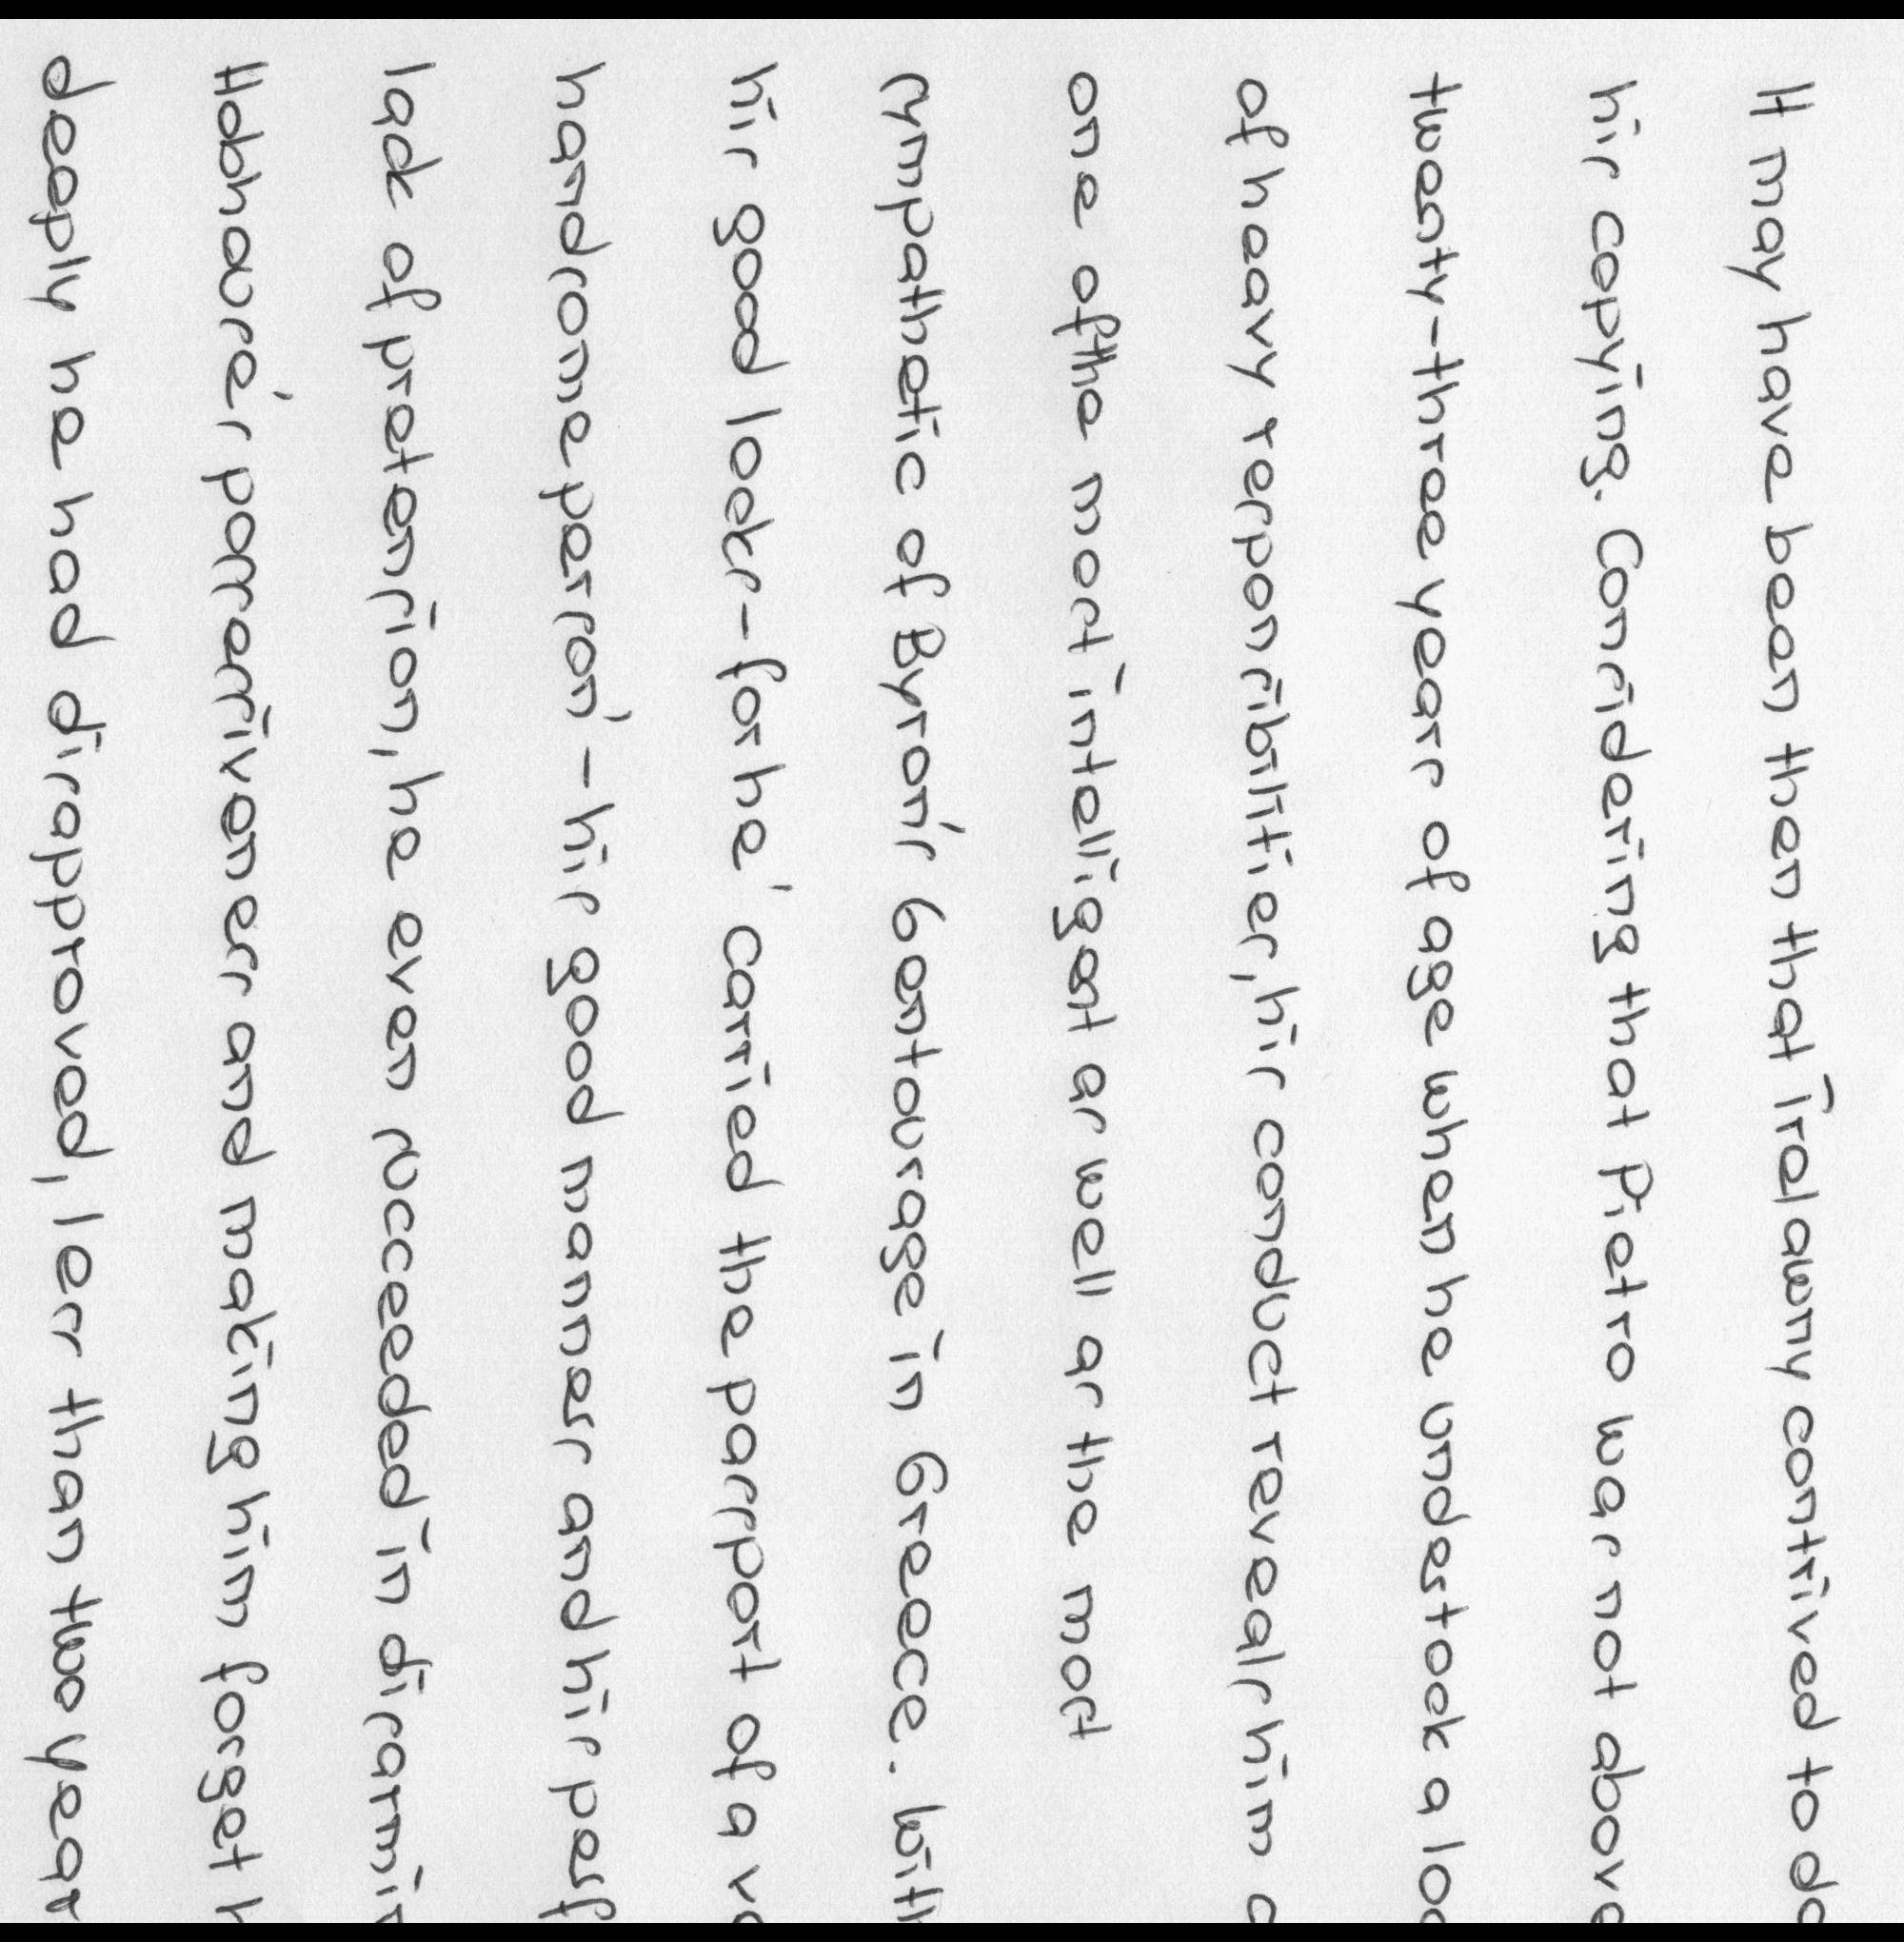 It may have been then that Trelawny contrived to do
his copying. Considering that Pietro was not above
twenty-three years of age when he undertook a
of heavy responsibilities, his conduct reveals him
one of the most intelligent as well as the most
sympathetic of Byron's Gentourage in Greece. With
his good looks-for he 'carried the passport of a
handsome person' - his good manners and his
lack of pretension, he even succeeded in
Hobhouse's possessiveness and making him forget
deeply he had disapproved, less than two year